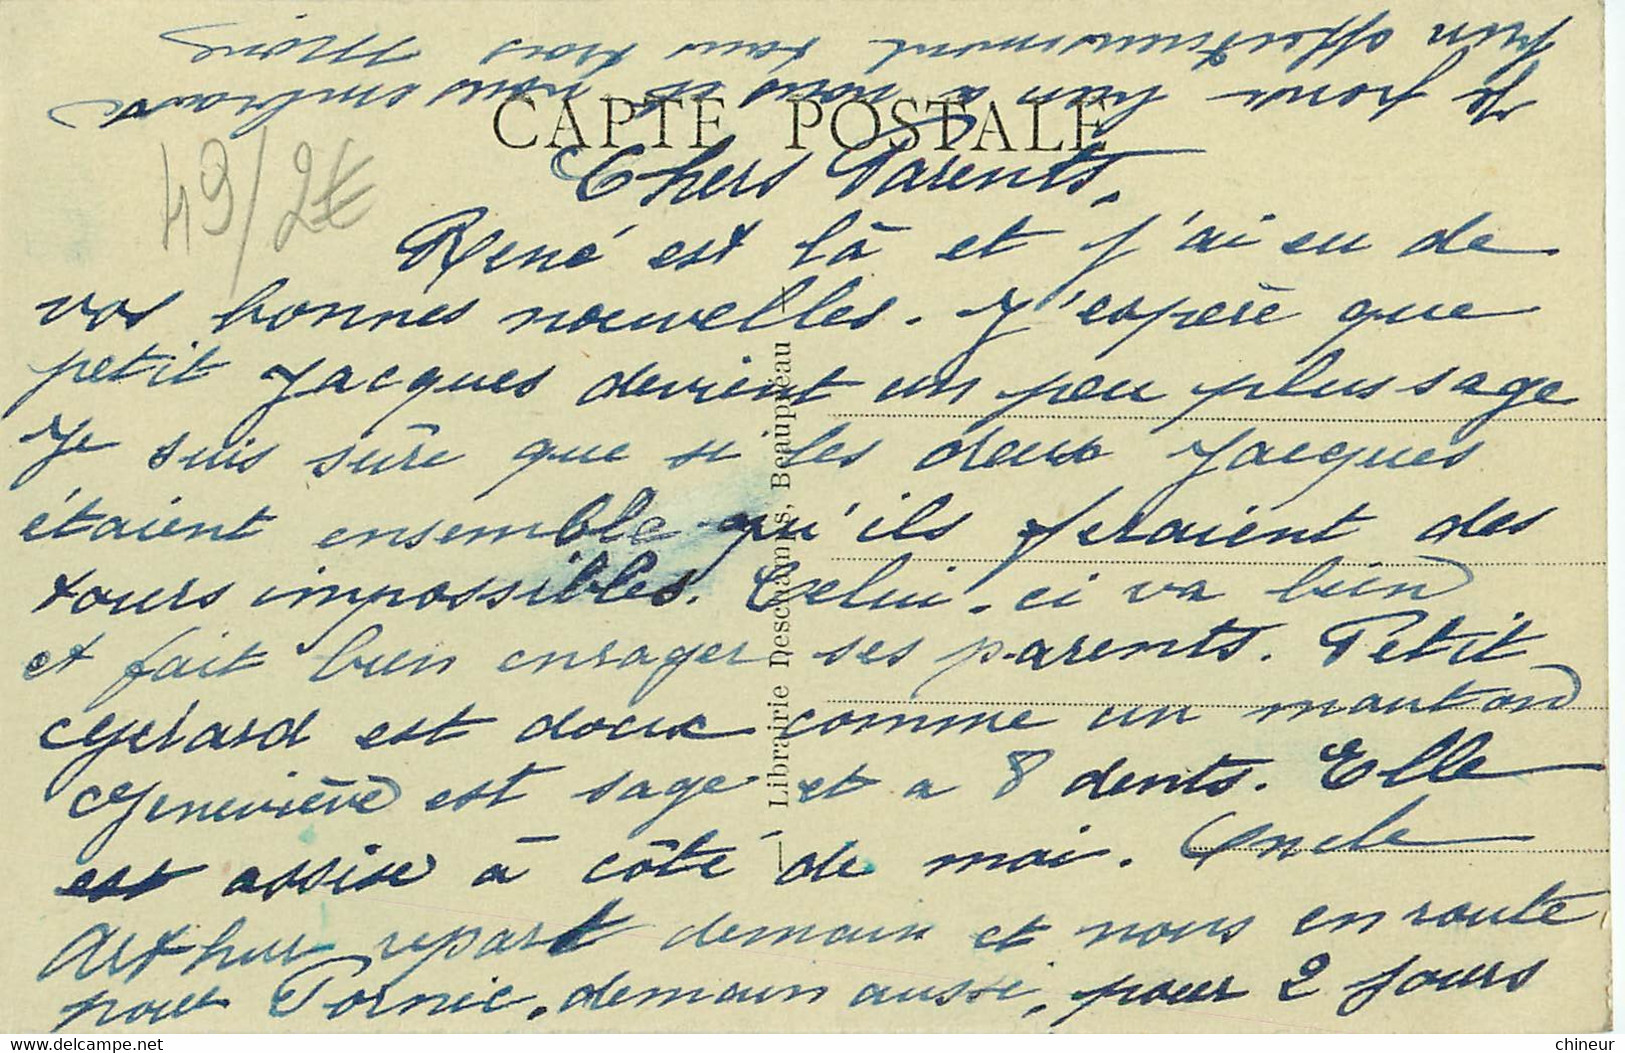 CARTE POSTALE
49/2€
Chers Parents,
René est là et j'ai eu de
vos bonnes nouvelles. J'espère que
petit Jacques devient un peu plus sage
Je suis sûre que si les deux Jacques
étaient ensemble qu'ils feraient des
tours impossibles. Celui-ci va bien
et fait bien enrager ses parents. Petit
Gérard est doux comme un mouton
Geneviève est sage et a 8 dents. Elle
est assise à côté de moi. Oncle
Arthur repart demain et nous en route
pour Pornic, demain aussi, pour 2 jours
Je pense bien à vous et vous embrasse
bien affectueusement tous trois
Librairie Deschamps, Beaupréau
delcampe.net
chineur